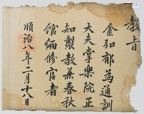 敎旨
金弘郁爲通訓
大夫掌樂院正
知製敎兼春秋
館編修官者
順治八年 月十 日